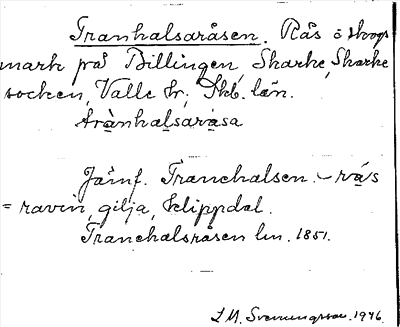 Tranhalsaråsen. Rås ö skogs
mark på Billingen, Skarke, Skarke
socken, Valle hr; Skb. län.
trànhalsaràsa
Jämf. Tranehalsen. – rås
= ravin, gilja, klippdal.
Tranehalsråsen lm. 1851.
S.M. Svenungsson. 1946.